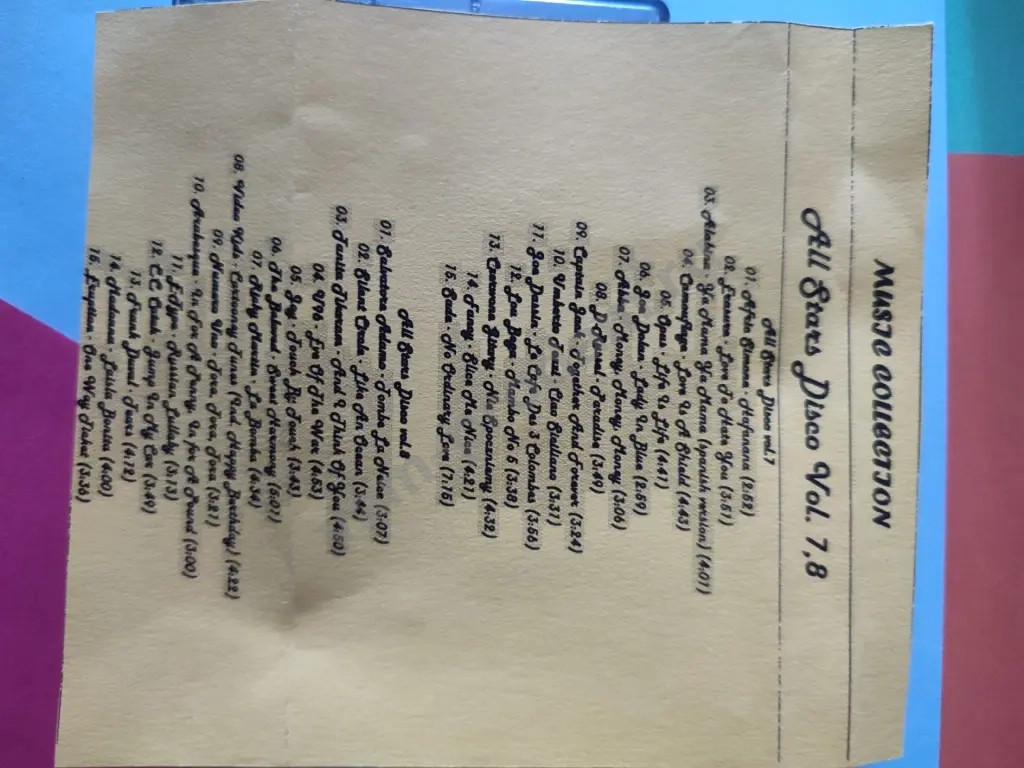 MUSIC COLLECTION
All Stars Disco Vol. 7,8
All Stars Disco vol.7
01. Afric Simone - Hafanana (2:52)
02. Eraser - Lon To Hate You (3:51)
03. Alabina - Ya Mama Ya Mama (spanish version) (4:01)
04. Camouflage - Love Is A Shield (4:43)
05. Opus - Life Is Life (4:41)
06. Joe Dolan - Lady In Blue (2:59)
07. Abba - Money, Money, Money (3:06)
08. D.Rassel - Paradise (3:49)
09. Captain Jack - Together And Forever (3:24)
10. Umberto Tozzi - Ciao Italiano (3:31)
11. Joe Dassin - Le Cafe Des 3 Colombes (3:56)
12. Lou Bega - Mambo No 5 (3:38)
13. (4:32)
14. Fancy - Slice Me Nice (4:21)
15. Sade - No Ordinary Love (7:15)
All Stars Disco vol.8
01. Salvatore Adamo - Tombe La Neige (3:07)
02. Silent Circle - Like An Ocean (3:44)
03. Juanita Thomson - And I Think Of You (4:50)
04. 4796 - Eve Of The War (4:53)
05. Joy - Touch By Touch (3:43)
06. The Beloved - Sweet Harmony (5:01)
07. Ricky Martin - La Bomba (4:34)
08. Video Kids - Cartoony Times (And Happy Birthday) (4:22)
09. Nuova Vis - Tora, Tora, Tora (3:21)
10. Arabesque - In For A Penny, In for A Pound (3:00)
11. E-Type - Russian Lullaby (3:13)
12. C.C.Catch - Jump In My Car (3:49)
13. Frank Duval - Tears (4:12)
14. Madonna - La Isla Bonita (4:00)
15. Eruption - One Way Ticket (3:36)